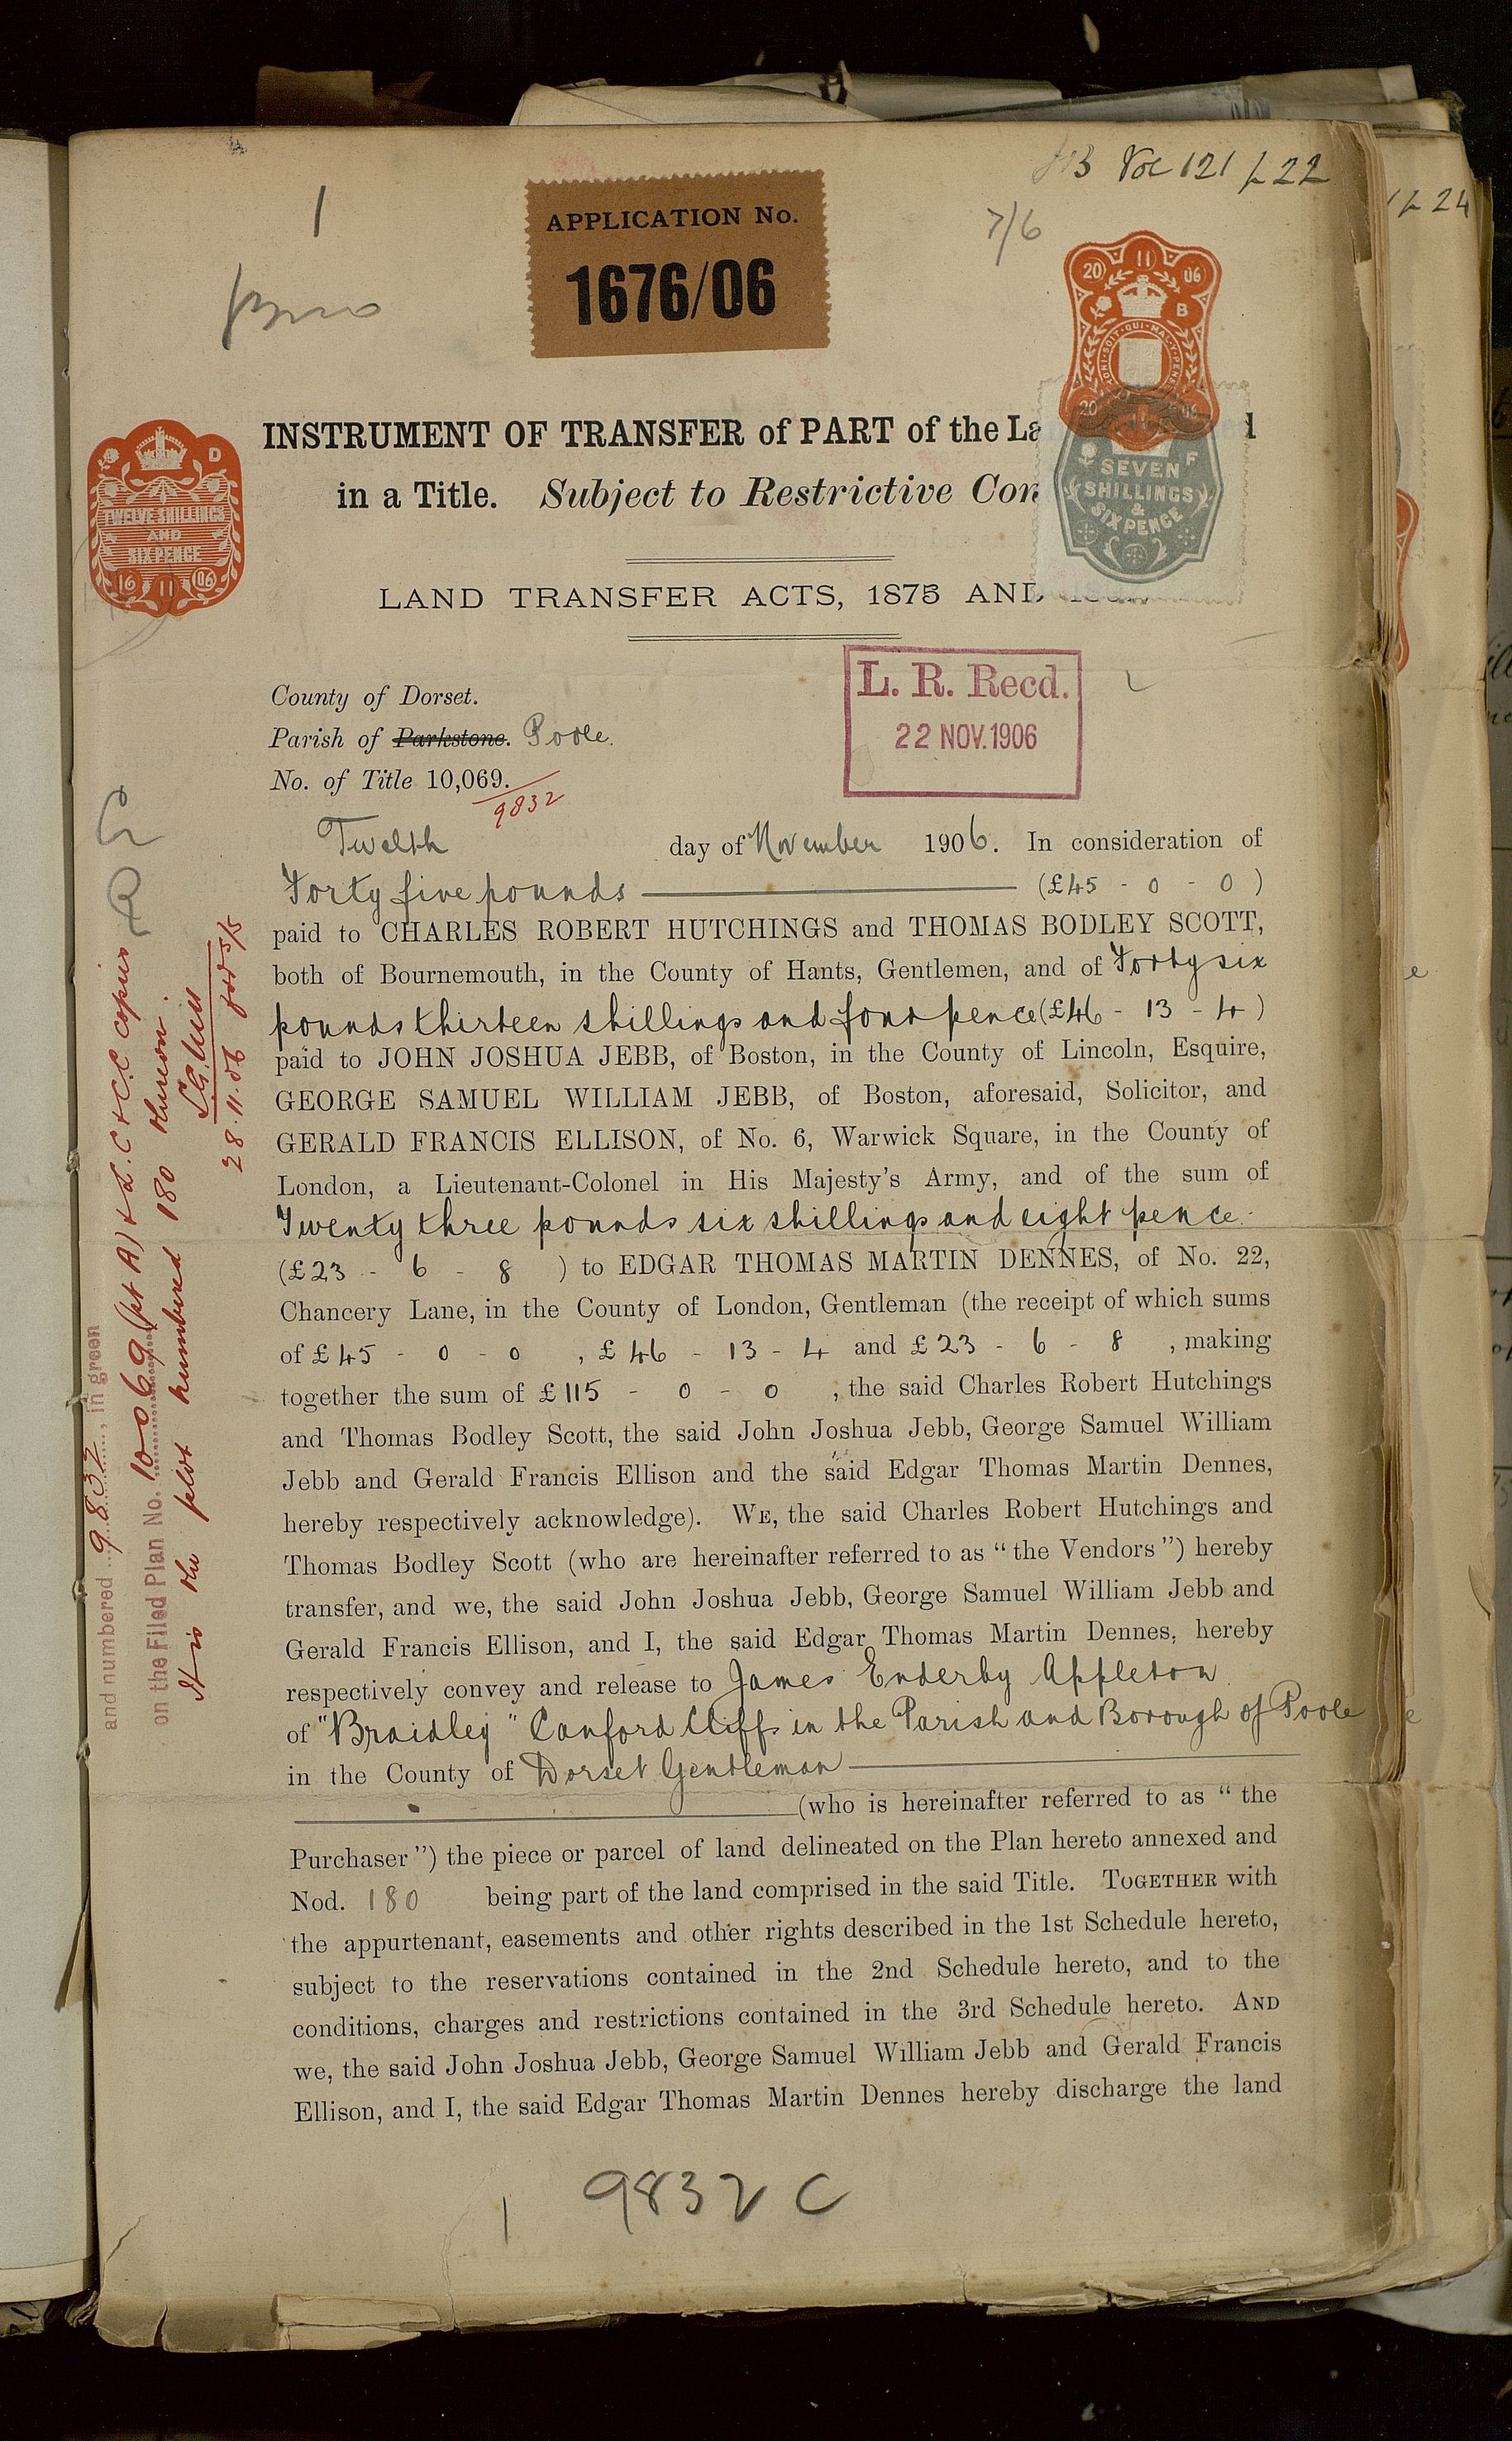 1
Vol 121 f 22
7/6
APPLICATION No.
1676/06
20 11 06
B
HONI·SOIT·QUI·MAL·Y·PENSE
20 06
SEVEN F
SHILLINGS
&
SIXPENCE
INSTRUMENT OF TRANSFER of PART of the La
in a Title. Subject to Restrictive Con
D
TWELVE SHILLINGS
AND
SIX PENCE
16 11 06
LAND TRANSFER ACTS, 1875 AND
L. R. Recd.
22 NOV. 1906
County of Dorset.
Parish of Parkstone. Poole.
No. of Title 10,069.
9832
Twelth day of November 1906. In consideration of
Forty five pounds (£45 - 0 - 0 )
paid to CHARLES ROBERT HUTCHINGS and THOMAS BODLEY SCOTT,
both of Bournemouth, in the County of Hants, Gentlemen, and of Forty six
pounds thirteen shillings and four pence (£46 - 13 - 4 )
paid to JOHN JOSHUA JEBB, of Boston, in the County of Lincoln, Esquire,
GEORGE SAMUEL WILLIAM JEBB, of Boston, aforesaid, Solicitor, and
GERALD FRANCIS ELLISON, of No. 6, Warwick Square, in the County of
London, a Lieutenant-Colonel in His Majesty's Army, and of the sum of
Twenty three pounds six shillings and eight pence
(£23 - 6 - 8 ) to EDGAR THOMAS MARTIN DENNES, of No. 22,
Chancery Lane, in the County of London, Gentleman (the receipt of which sums
of £45 - 0 - 0 , £46 - 13 - 4 and £23 - 6 - 8 , making
together the sum of £115 - 0 - 0 , the said Charles Robert Hutchings
and Thomas Bodley Scott, the said John Joshua Jebb, George Samuel William
Jebb and Gerald Francis Ellison and the said Edgar Thomas Martin Dennes,
hereby respectively acknowledge). WE, the said Charles Robert Hutchings and
Thomas Bodley Scott (who are hereinafter referred to as "the Vendors") hereby
transfer, and we, the said John Joshua Jebb, George Samuel William Jebb and
Gerald Francis Ellison, and I, the said Edgar Thomas Martin Dennes, hereby
respectively convey and release to James Enderby Appleton
of "Braidley" Canford Cliffs in the Parish and Borough of Poole
in the County of Dorset Gentleman
(who is hereinafter referred to as "the
Purchaser") the piece or parcel of land delineated on the Plan hereto annexed and
Nod. 180 being part of the land comprised in the said Title. TOGETHER with
the appurtenant, easements and other rights described in the 1st Schedule hereto,
subject to the reservations contained in the 2nd Schedule hereto, and to the
conditions, charges and restrictions contained in the 3rd Schedule hereto. AND
we, the said John Joshua Jebb, George Samuel William Jebb and Gerald Francis
Ellison, and I, the said Edgar Thomas Martin Dennes hereby discharge the land
1 9832 C
and numbered 9832, in green
on the Filed Plan No. 10069 (pt A) & L.C & C.C copies
It is the plot numbered 180 thereon.
28.11.06
f 24